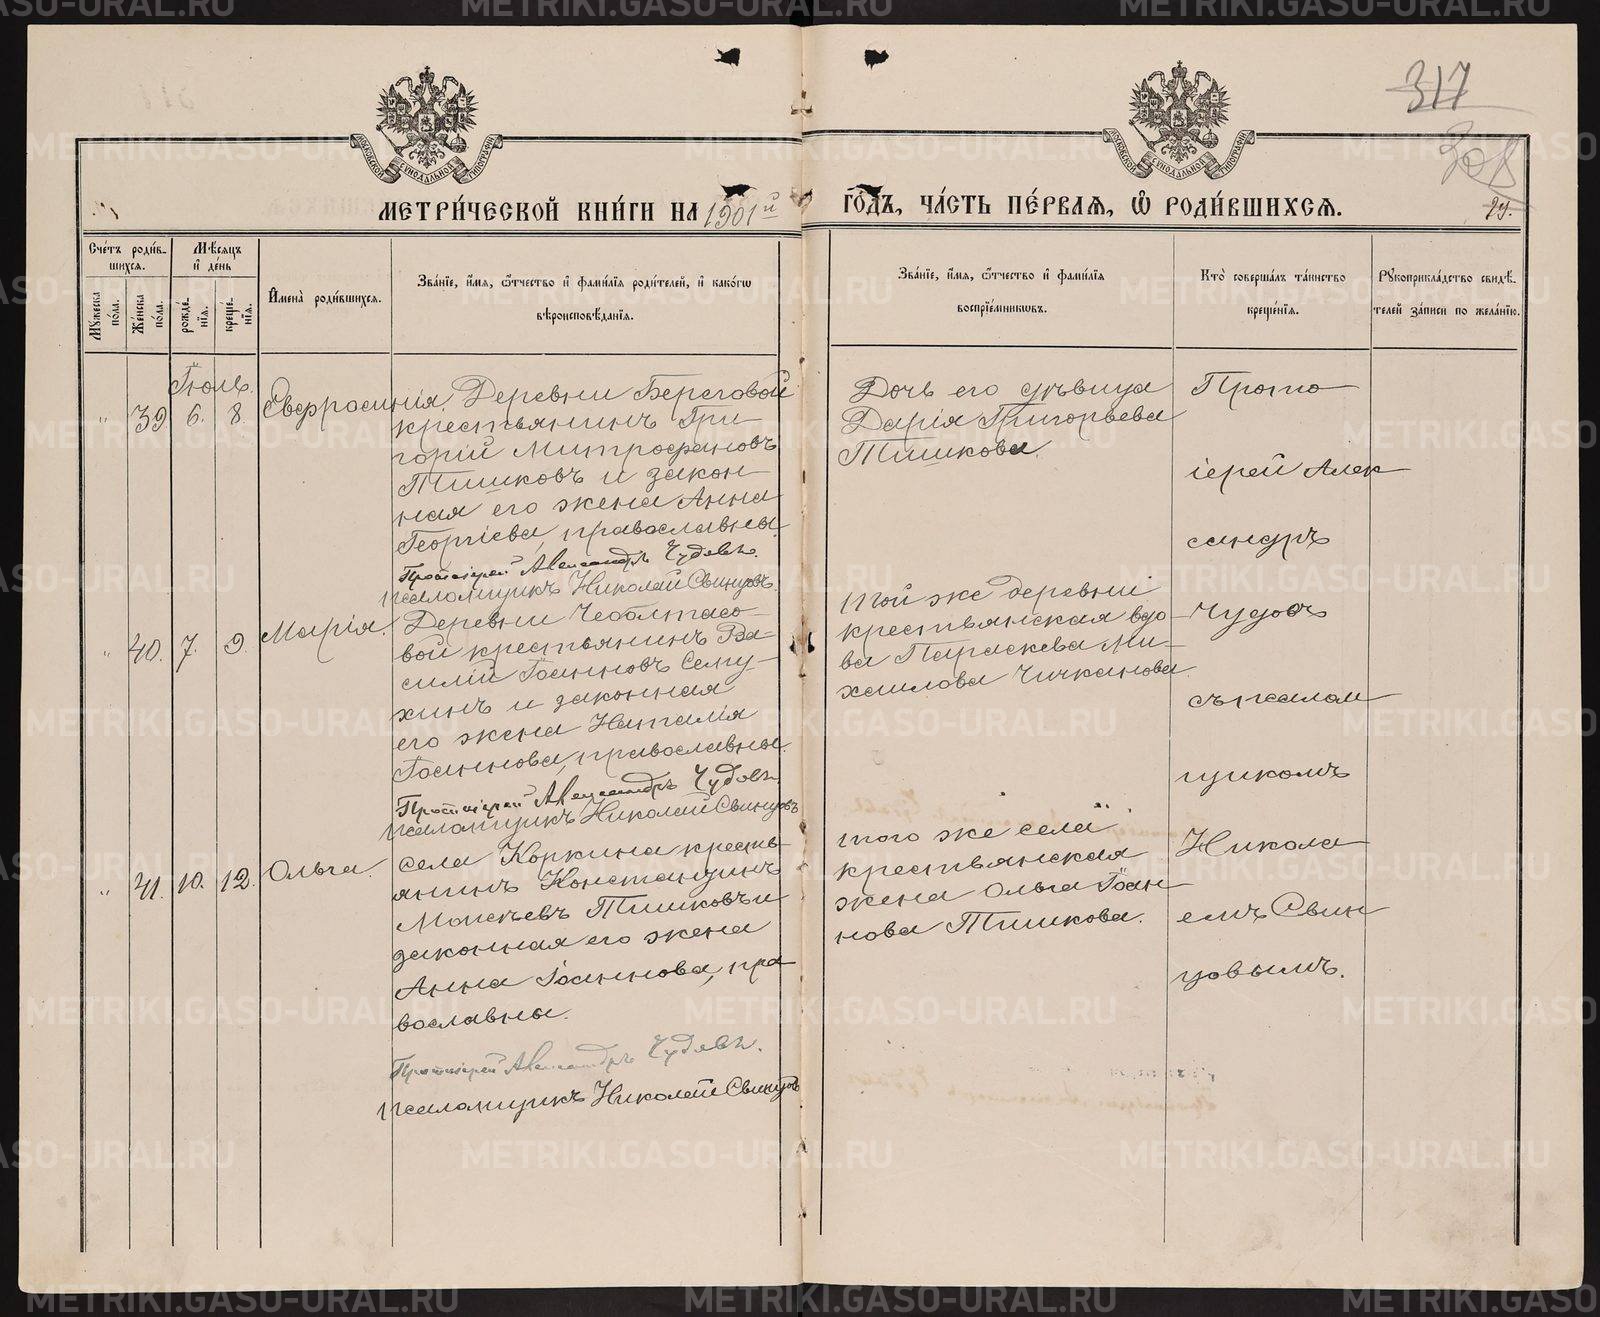 317
МЕТРИ́ЧЕСКОЙ КНИ́ГИ НА 1901й
ГО́ДЪ, ЧА́СТЬ ПЕ́РВАЯ, Ѽ РОДИ́ВШИХСЯ.
29.
Сче́тъ роди́в-
шихся.
Мѣ́сяцъ
и҆ де́нь
Мꙋжеска по́ла.
Же́нска по́ла.
рожде́-
нїя.
креще́-
нїя.
И҆мена̀ роди́вшихся.
Зва́нїе, и҆́мя, ѻ҆́тчество и҆ фами́лїя роди́телей, и҆ како́гѡ
вѣроисповѣ́данїя.
Зва́нїе, и҆́мя, ѻ҆́тчество и҆ фами́лїя
воспрїе́мникѡвъ.
Кто̀ соверша́лъ та́инство
креще́нїя.
Рꙋкоприкла́дство свидѣ́-
телей за́писи по жела́нїю.
Іюль.
" 39. 6. 8. Евфросинія.
Деревни Береговой
крестьянинъ Гри-
горій Митрофановъ
Тишковъ и закон-
ная его жена Анна
Георгіева, православны.
Протоіерей Александръ Чудовъ.
Псаломщикъ Николай Свинцовъ.
Дочь его дѣвица
Дарія Григорьева
Тишкова.
" 40. 7. 9. Марія.
Деревни Чеботасо-
вой крестьянинъ Ва-
силій Іоанновъ Сему-
хинъ и законная
его жена Наталія
Іоаннова, православны.
Протоіерей Александръ Чудовъ.
Псаломщикъ Николай Свинцовъ
Той же деревни
крестьянская вдо-
ва Параскева Ми-
хаилова Чичканова.
" 41. 10. 12. Ольга.
Села Коркина кресть-
янинъ Константинъ
Моисѣевъ Тишковъ и
законная его жена
Анна Іоаннова, пра
вославны.
Протоіерей Александръ Чудовъ.
Псаломщикъ Николай Свинцовъ
того же села
крестьянская
жена Ольга Іоан-
нова Тишкова.
Прото-
іерей Алек-
сандръ
Чудовъ
съ псалом-
щикомъ
Никола-
емъ Свин-
цовымъ.
METRIKI.GASO-URAL.RU